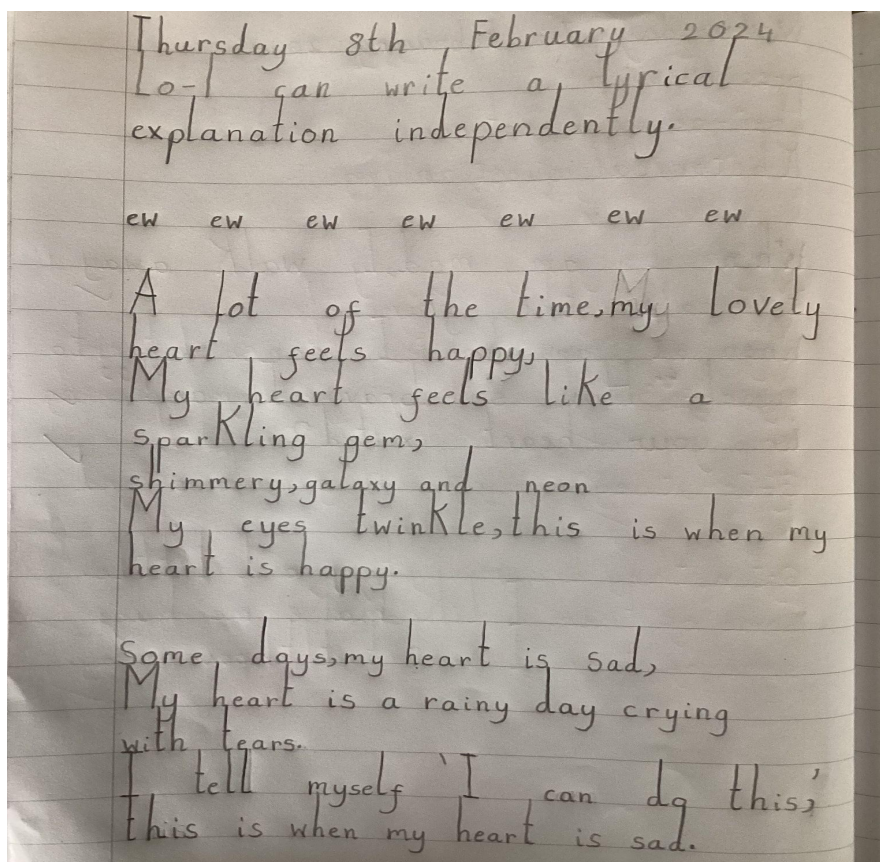 Thursday 8th February 2024
Lo-I can write a lyrical
explanation independently.
ew ew ew ew ew ew ew
A lot of the time, my lovely
heart feels happy,
My heart feels like a
sparkling gem,
shimmery, galaxy and neon
My eyes twinkle, this is when my
heart is happy.
Some days, my heart is sad,
My heart is a rainy day crying
with tears.
I tell myself 'I can do this,'
this is when my heart is sad.